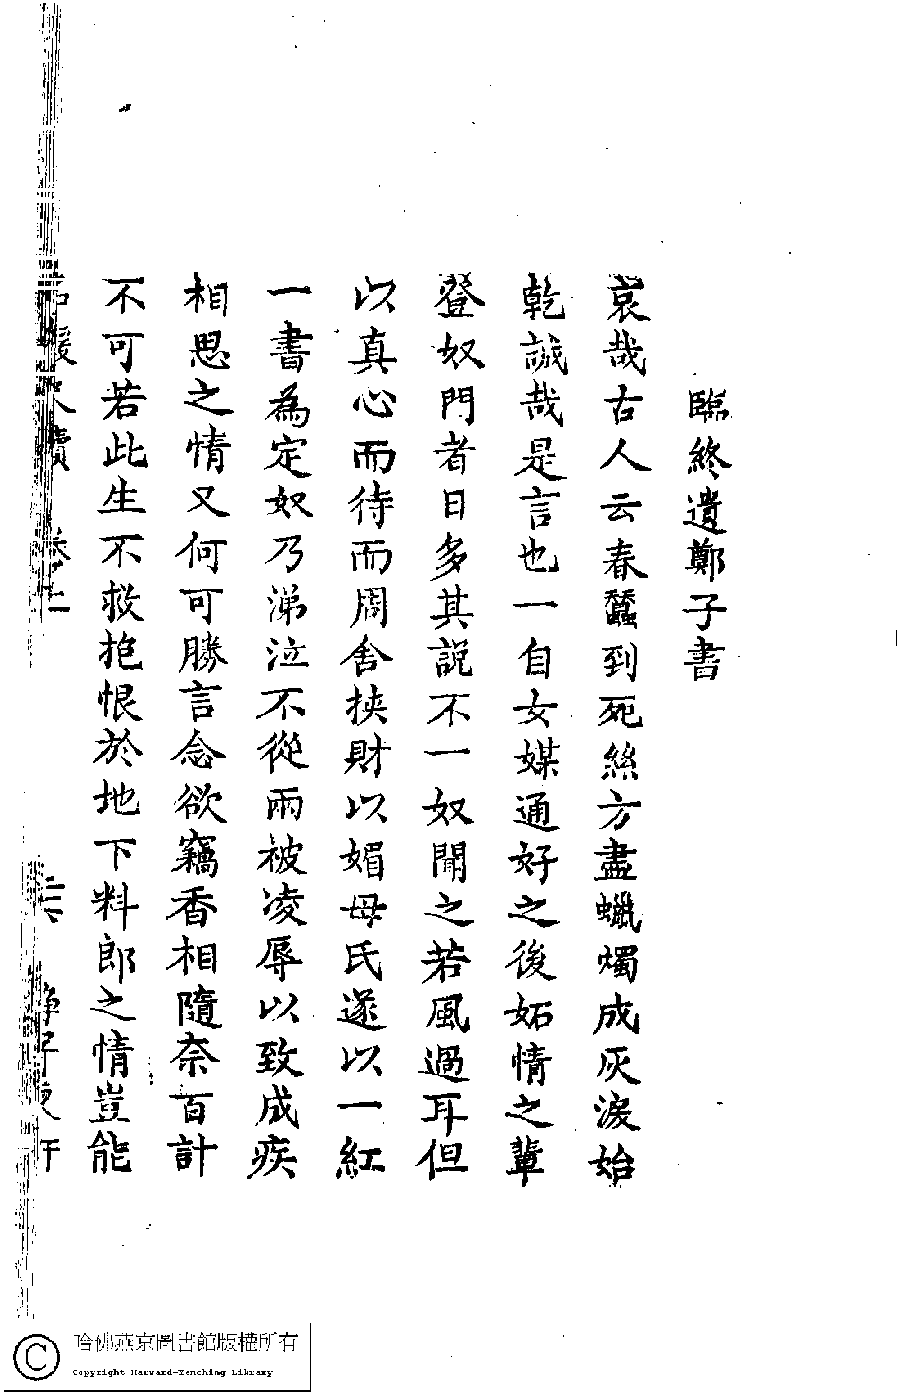 臨終遺鄭子書
哀哉古人云春蠶到死絲方盡蠟燭成灰淚始
乾誠哉是言也一自女媒通好之後妬情之輩
登奴門者日多其說不一奴聞之若風過耳但
以真心而待而周舍挾財以媚母氏遂以一紅
一書為定奴乃涕泣不從兩被凌辱以致成疾
相思之情又何可勝言念欲竊香相隨奈百計
不可若此生不救抱恨於地下料郎之情豈能
媛 續 卷上
哈佛燕京圖書館版權所有
Copyright Harvard-Yenching Library